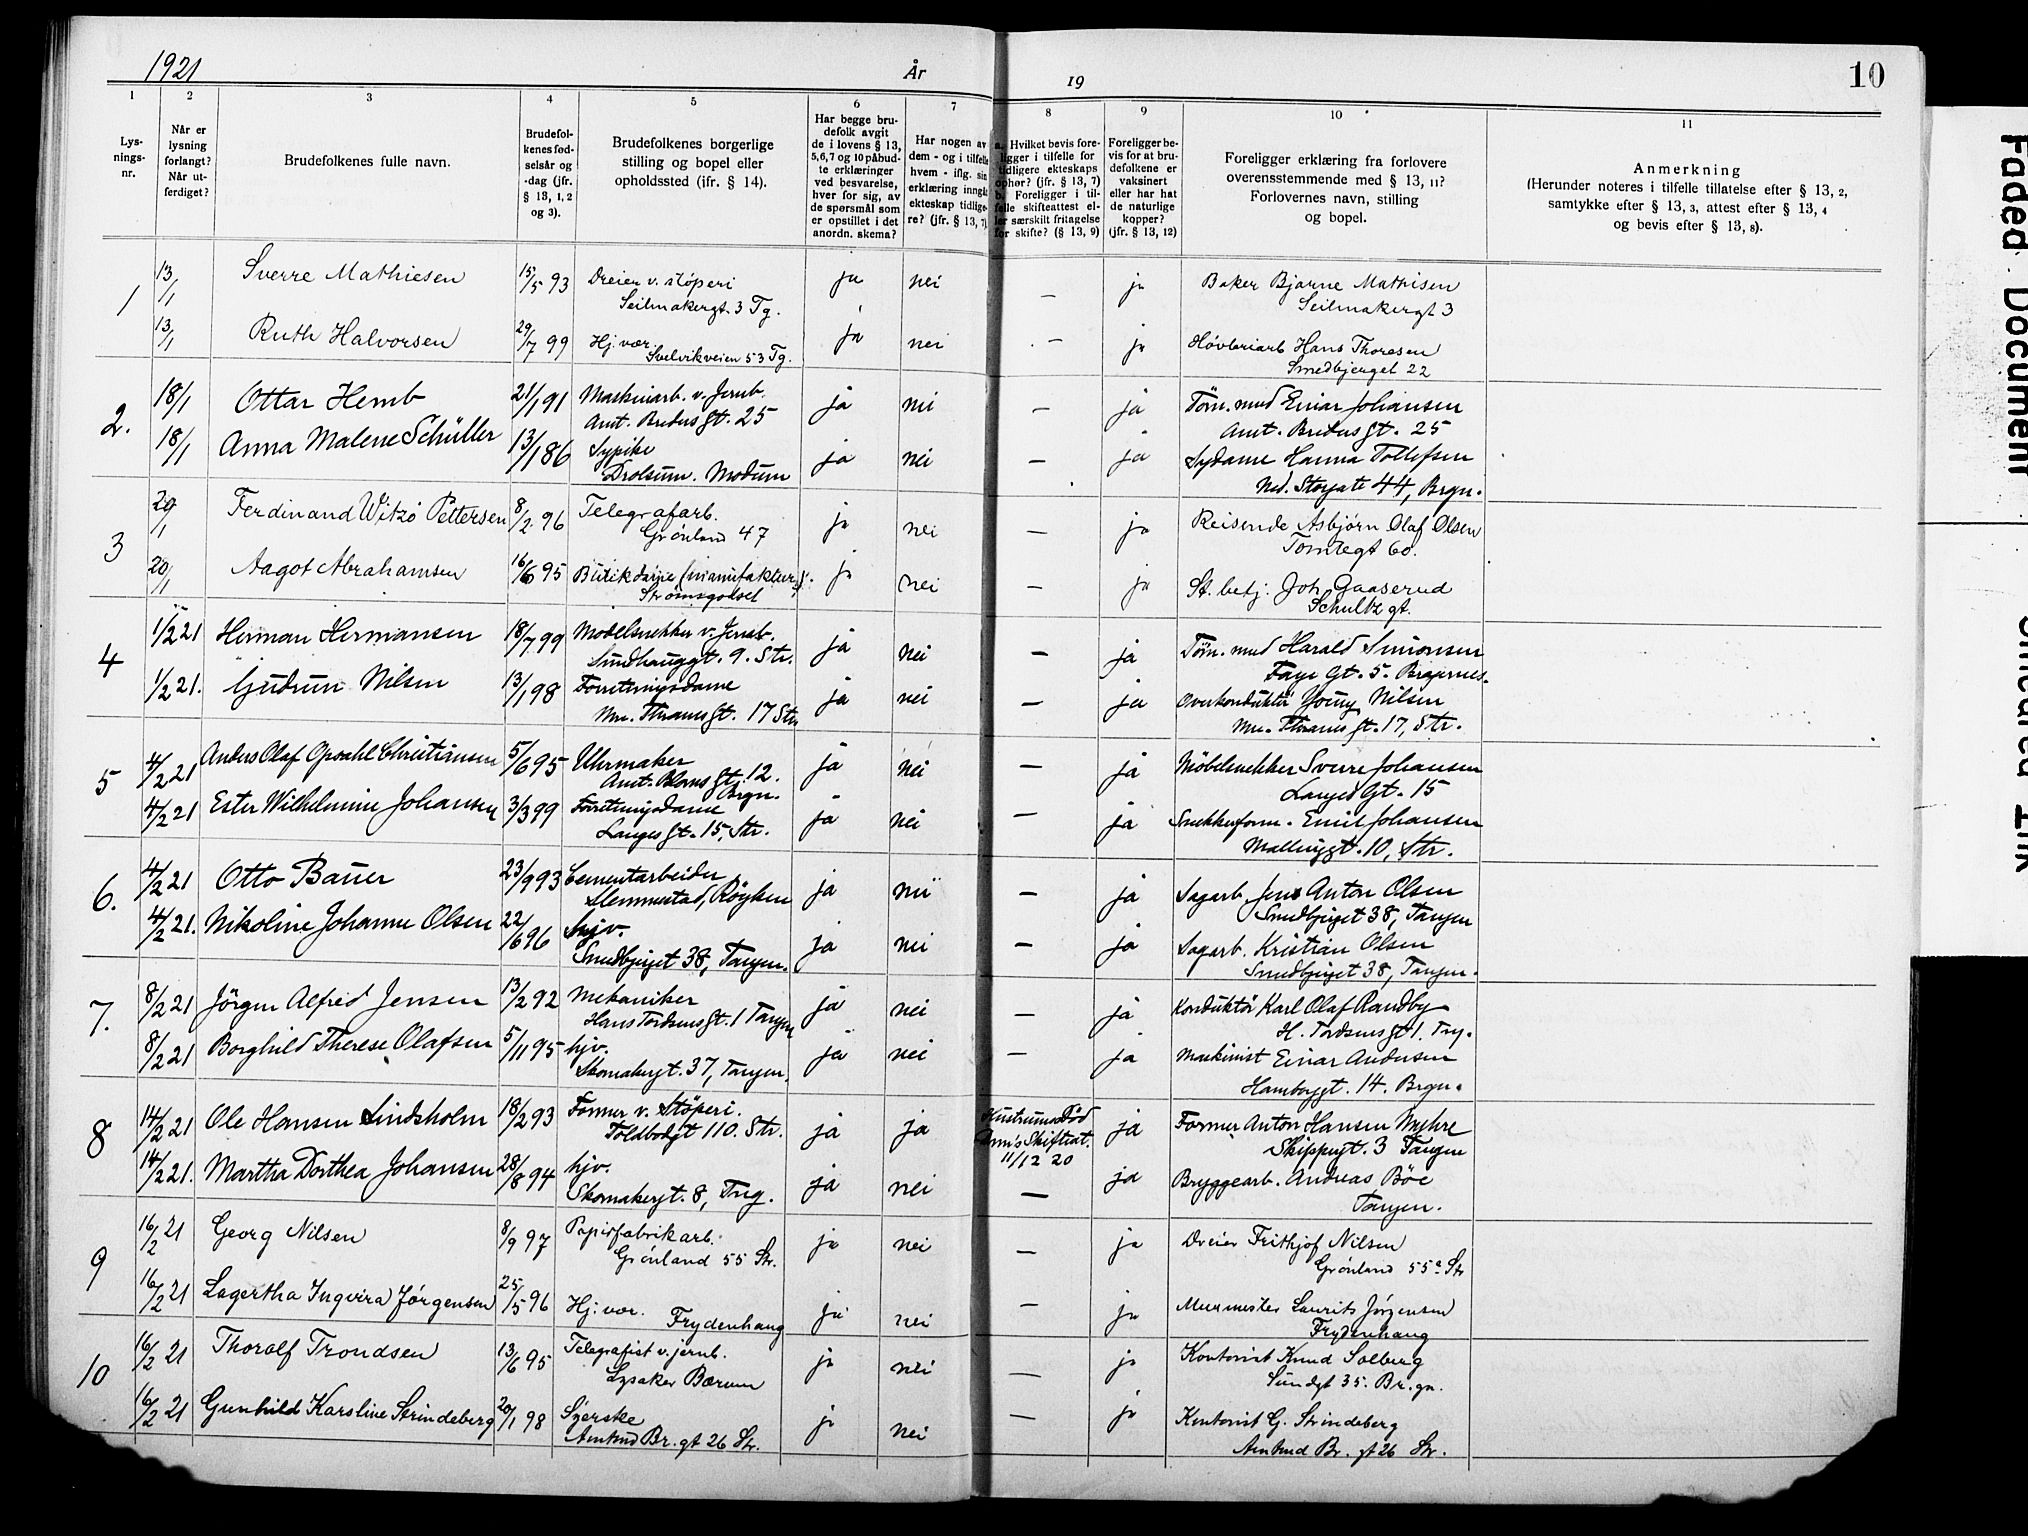 1921 År 19 10
1 2 3 4 5 6 7 8 9 10 11
Lys-
nings-
nr.
Når er
lysning
forlangt?
Når ut-
ferdiget?
Brudefolkenes fulle navn.
Brudefol-
kenes fød-
selsår og
-dag (jfr.
§ 13, 1, 2
og 3).
Brudefolkenes borgerlige
stilling og bopel eller
opholdssted (ifr. § 14).
Har begge bru-
defolk avgit
de i lovens § 13,
5, 6, 7 og 10 påbud-
te erklæringer
ved besvarelse,
hver for sig, av
de spørsmål som
er opstillet i det
anordn. skema?
Har nogen av
dem - og i tilfelle
hvem - iflg. sin
erklæring inngåt
ekteskap tidlige-
re? (jfr. § 13, 7)
a. Hvilket bevis fore-
ligger i tilfelle for
tidligere ekteskaps
ophør? (jfr. § 13, 7)
b. Foreligger i til-
felle skifteattest el-
ler særskilt fritagelse
for skifte? (§ 13, 9)
Foreligger be-
vis for at bru-
defolkene er
vaksinert
eller har hat
de naturlige
kopper?
(jfr. § 13, 12)
Foreligger erklæring fra forlovere
overensstemmende med § 13, 11?
Forlovernes navn, stilling
og bopel.
Anmerkning
(Herunder noteres i tilfelle tillatelse efter § 13, 2,
samtykke efter § 13, 3, attest efter § 13, 4
og bevis efter § 13, 8).
1 13/1 Sverre Mathiesen 15/5 93 Dreier v. støperi ja nei — ja Baker Bjarne Mathisen
Seilmakergt. 3 Tg. Seilmakergt 3
13/1 Ruth Halvorsen 29/7 99 Hj. vær. ja nei — ja Høvleriarb Hans Thoresen
Svelvikveien 53 Tg. Smedbjerget 22
2. 18/1 Ottar Hemb 21/1 91 Maskinarb. v. Jernb. ja nei — ja Töm. mud Einar Johansen
Amt. Bredus Gt. 25 Amt. Bredus Gt. 25
18/1 Anna Malene Schüller 13/1 86 Sypike ja nei — ja Sydame Hanna Tollefsen
Drolsum. Modum Ned. Storgate 44, Brgn.
3 20/1 Ferdinand Witzø Pettersen 8/2 96 Telegrafarb. ja nei — ja Reisende Asbjørn Olaf Olsen
Grönland 47 Tomtegt 60.
20/1 Aagot Abrahamsen 16/6 95 Butikdame (manufaktur) ja nei — ja St. betj. Joh. Gaaserud
Strömsgodset Schultz gt.
4 1/2 21 Herman Hermansen 18/7 99 Modelsnekker v. Jernb. ja nei — ja Töm. mud Harald Simonsen
Sundhauggt. 9. Str. Faye Gt. 5. Bragernes.
1/2 21. Gudrun Nilsen 13/1 98 Forretningsdame ja nei — ja Overkonduktör Young Nilsen
Mrc. Thranes Gt. 17 Str. Mrc. Thranes gt. 17, Str.
5 4/2 21 Anders Olaf Opsahl Christiansen 5/6 95 Uhrmaker ja nei — ja Möbelsnekker Sverre Johansen
Amt. Bloms Gt. 12. Langes Gt. 15
Brgn.
4/2 21 Ester Wilhelmine Johansen 3/3 99 Forretningsdame ja nei — ja Snekkerform. Emil Johansen
Langes Gt. 15, Str. Mallinggt. 10, Str.
6. 4/2 21 Otto Bauer 23/9 93 Cementarbeider ja nei — ja Sagarb. Jens Anton Olsen
Slemmestad, Röyken Smedbjerget 38, Tangen
4/2 21. Nikoline Johanne Olsen 22/6 96 hjv. ja nei — ja Sagarb. Kristian Olsen
Smedbjerget 38, Tangen. Smedbjerget 38, Tangen.
7. 8/2 21 Jörgen Alfred Jensen 13/2 92 Mekaniker ja nei — ja Konduktör Karl Olaf Randby
Hans Tordsens Gt. 1 Tangen H. Tordsens Gt 1. Tng.
8/2 21 Borghild Therese Olafsen 5/11 95 hjv. ja nei — ja Maskinist Einar Andersen
Skomakergt. 37, Tangen. Hamborggt. 14. Brgn.
8 14/2 21 Ole Hansen Lindsholm 18/2 93 Former v. Stöperi. ja ja Hustruens Död ja Former Anton Hansen Myhre
Toldbodgt 110. Str. Drm's Skifteat. Skippergt. 3 Tangen
11/12 20
14/2 21. Martha Dorthea Johansen 28/8 94 hjv. ja nei — ja Bryggearb. Andreas Böe
Skomakergt. 8, Tng. Tangen.
9 16/2 21 Georg Nilsen 8/9 97 Papirfabrikarb. ja nei — ja Dreier Frithjof Nilsen
Grönland 55 Str. Grönland 55a Str
16/2 21 Lagertha Ingvira Jörgensen 25/5 96 Hj. vær. ja nei — ja Murmester Laurits Jörgensen
Frydenhaug Frydenhaug
10 16/2 21 Thoralf Trondsen 13/6 95 Telegrafist v. jernb. ja nei — ja Kontorist Knud Solberg
Lysaker Bærum Sundgt 35. Br.gn.
16/2 21 Gunhild Karoline Strindeberg 20/1 98 Syerske ja nei — ja Kontorist G. Strindeberg
Amtmd Br. gt 26 Str. Amtmd Br. gt 26 Str.
Faded Document
Smeared Ink